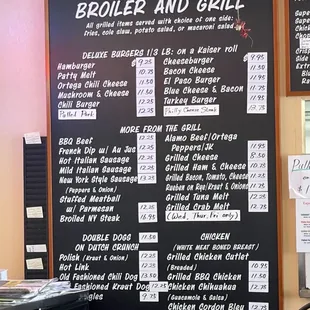 BROILER AND GRILL
All grilled items served with choice of one side:
fries, cole slaw, potato salad, or macaroni salad
DELUXE BURGERS 1/3 LB: on a Kaiser roll
Hamburger 9.25
Patty Melt 12.25
Ortega Chili Cheese 11.50
Mushroom & Cheese 11.50
Chili Burger 12.25
Cheeseburger 9.95
Bacon Cheese 11.50
El Paso Burger 12.25
Blue Cheese & Bacon 12.25
Turkey Burger 11.50
Philly Cheese Steak
MORE FROM THE GRILL
BBQ Beef 12.25
French Dip w/ Au Jus 12.25
Hot Italian Sausage 12.25
Mild Italian Sausage 12.25
New York Style Sausage 13.25
(Peppers & Onion)
Stuffed Meatball
w/ Parmesan 12.25
Broiled NY Steak 16.95
Alamo Beef/Ortega
Peppers/JK
Grilled Cheese
Grilled Ham & Cheese
Grilled Bacon, Tomato, Cheese
Reuben on Rye/Kraut & Onions
Grilled Tuna Melt
Grilled Crab Melt
(Wed, Thur, Fri only)
DOUBLE DOGS 11.50
ON DUTCH CRUNCH
Polish (Kraut & Onion) 12.25
Hot Link 12.25
Old Fashioned Chili Dog 13.50
Old Fashioned Kraut Dog 12.25
CHICKEN
(WHITE MEAT BONED BREAST)
Grilled Chicken Cutlet
(Breaded) 10.95
Grilled BBQ Chicken 11.50
Chicken Chihuahua 12.25
(Guacamole & Salsa)
Chicken Cordon Bleu